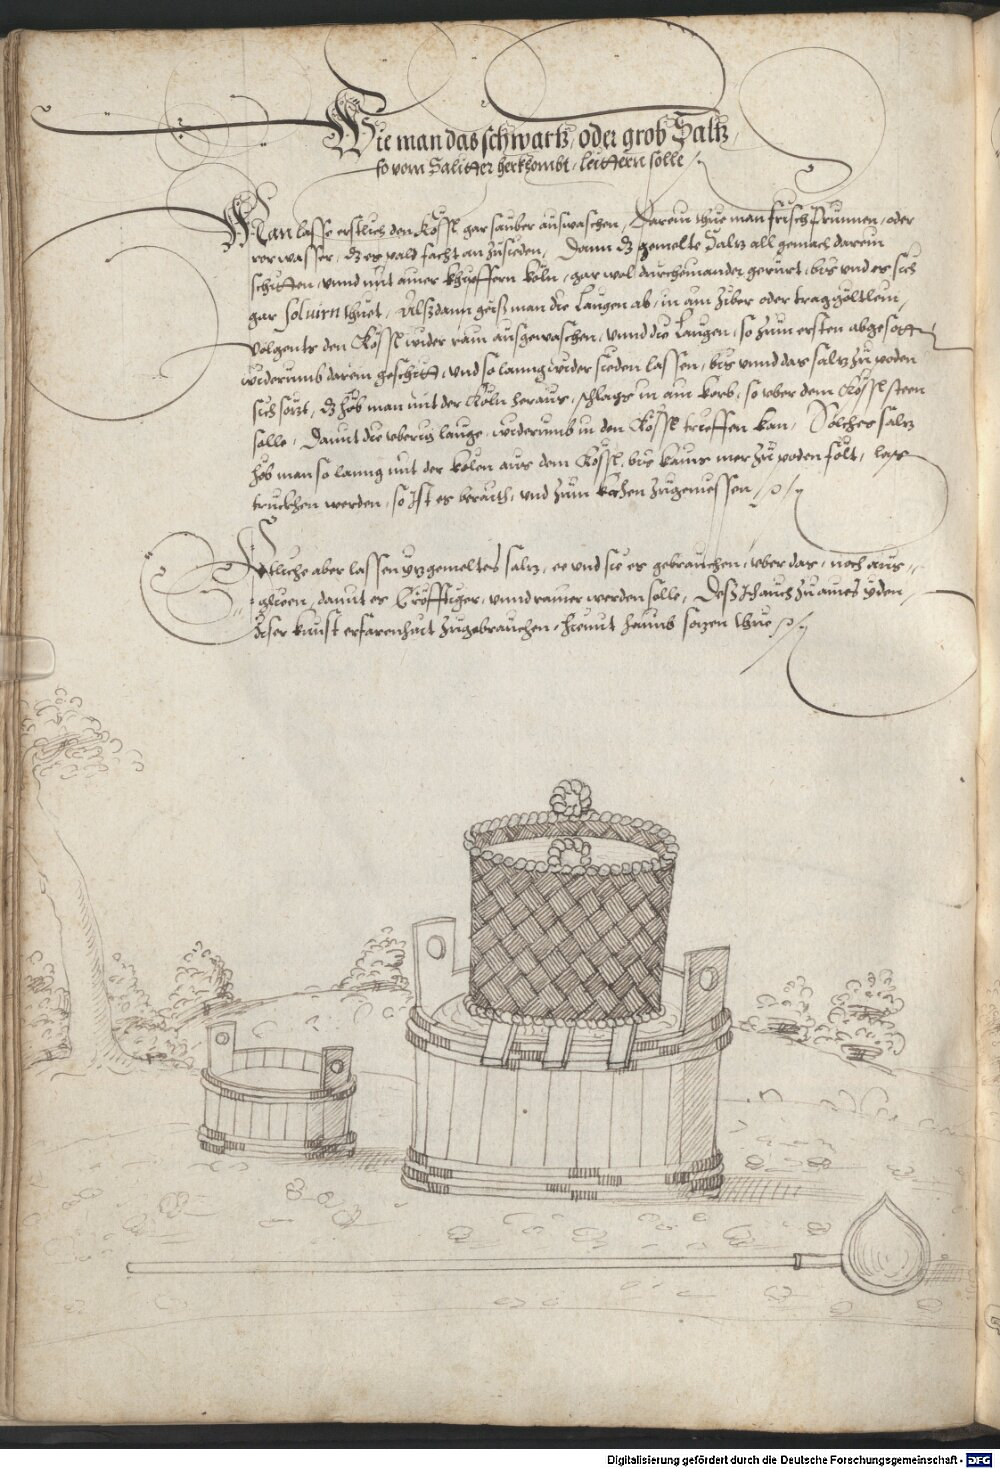 Wie man das schwartz, oder grob Saltz,
so vom Salitter herkhombt, leittern solle
Man lasse erstlich den Kössl gar sauber auswaschen, Darein thue man frisch Prunnen, oder
ror wasser, dz es pald facht an zusieden, Dann dz gemelte Saltz all gemach darein
schitten, vnnd mit ainer khupffern köln, gar wol durcheinander gerürt, bis vnd es sich
gar soluirn thuet, Alsdann geist man die Laugen ab, in ain ziber oder
volgents den Kössl wider rain ausgewaschen, vnnd die Laugen, so zum ersten abgesott
widerumb darein geschitt, vnd so lanng wider sieden lassen, bis vnnd das saltz zu poden
sich sözt, dz hob man mit der Köln heraus, schlags in ain korb, so vber dem Kössl steen
solle, Damit die vberig lauge, widerumb in den Kössl trieffen kan, Solches saltz
hob man so lanng mit der kölen aus dem Kössl, bis kains mer zu poden fölt, lass
truckhen werden, so ist es berait, vnd zum zugeniessen
Etliche aber lassen yzgemeltes saltz, ee vnd sie es gebrauchen, vber das, noch aus
glueen, damit es Cröfftiger, vnnd rainer werden solle, Des Ich auch zu aines yden
diser kunst erfarenhait zugebrauchen, hiemit haimb sözen thue
Digitalisierung gefördert durch die Deutsche Forschungsgemeinschaft - DFG